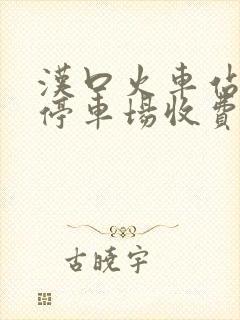 漢口火車佔
停車場收費
古曉宇